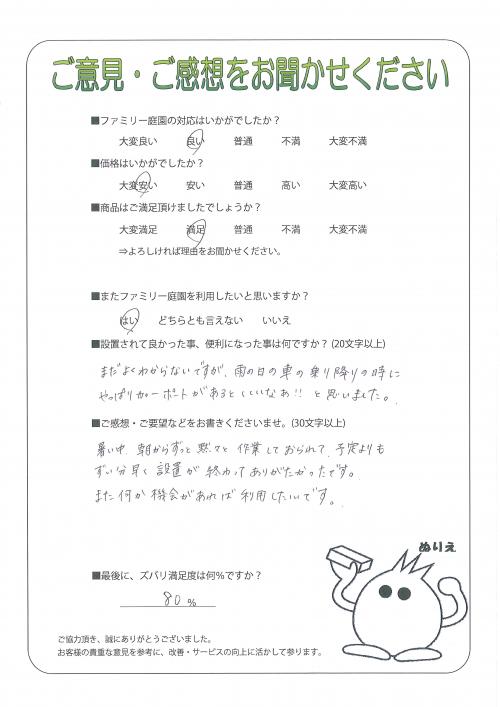 ご意見・ご感想をお聞かせください
■ファミリー庭園の対応はいかがでしたか？
大変良い 良い 普通 不満 大変不満
■価格はいかがでしたか？
大変安い 安い 普通 高い 大変高い
■商品はご満足頂けましたでしょうか？
大変満足 満足 普通 不満 大変不満
⇒よろしければ理由をお聞かせください。
■またファミリー庭園を利用したいと思いますか？
はい どちらとも言えない いいえ
■設置されて良かった事、便利になった事は何ですか？(20文字以上)
まだよくわからないですが、雨の日の車の乗り降りの時に
やっぱりカーポートがあるといいなぁ!! と思いました。
■ご感想・ご要望などをお書きくださいませ。(30文字以上)
暑い中、朝からずっと黙々と作業しておられて、予定よりも
ずい分早く設置が終わってありがたかったです。
また何か機会があれば利用したいです。
ぬりえ
■最後に、ズバリ満足度は何%ですか？
80 %
ご協力頂き、誠にありがとうございました。
お客様の貴重な意見を参考に、改善・サービスの向上に活かして参ります。